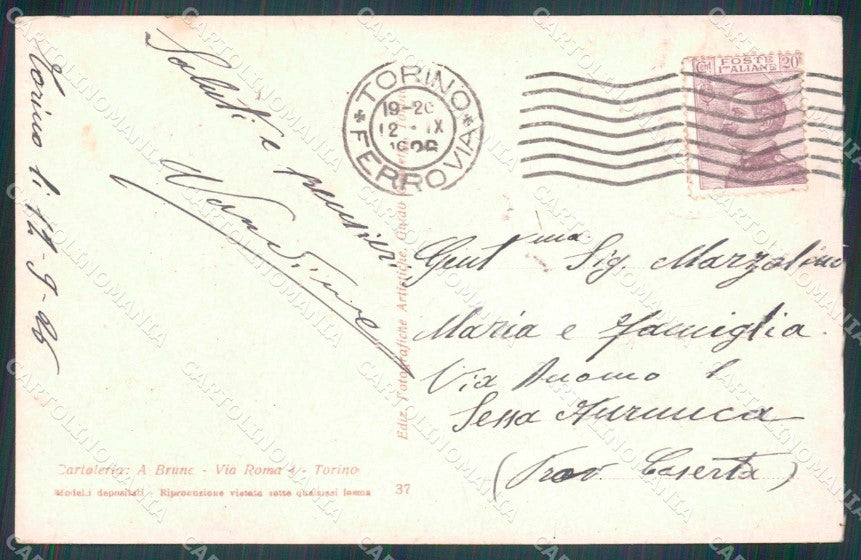 Torino li 12-9-26
Saluti e pensieri
TORINO
19-20
12 IX
1926
FERROVIA
POSTE
ITALIANE
Cent 20
Gent.ma Sig. Marzolino
Maria e famiglia
Via Duomo 1
Sessa Aurunca
(Prov Caserta)
Ediz. Fotografiche Artistiche, Guido
Cartoleria: A Brunc - Via Roma 4 - Torino
Modelli depositati - Riproduzione vietata sotto qualsiasi forma
37
CARTOLINOMANIA